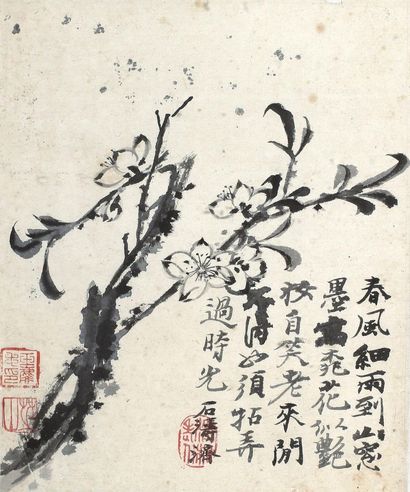 春風細雨到山窓
墨寫桃花似艷
粧自笑老來閒
不得也須拈弄
過時光
石濤濟